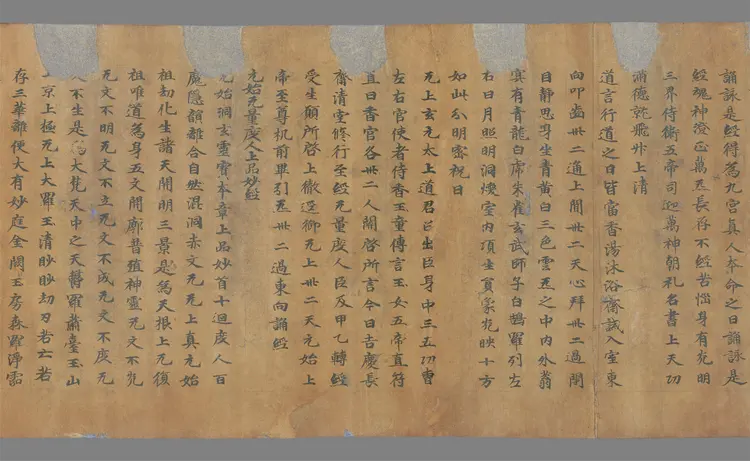 誦詠是經得為九宮真人本命之日誦詠是
經魂神澄正萬炁長存不經苦惱身有光明
三界侍衛五帝司迎萬神朝礼名書上天功
滿德就飛升上清
道言行道之日皆當香湯沐浴齋誡入室東
向叩齒卅二通上聞卅二天心拜卅二過閇
目靜思身坐青黃白三色雲炁之中內外蓊
冥有青龍白虎朱雀玄武師子白鶴羅列左
右日月照明洞煥室內項生員象光映十方
如此分明密祝曰
无上玄元太上道君召出臣身中三五功曹
左右官使者侍香玉童傳言玉女五帝直符
直日香官各卅二人關啓所言今日吉慶長
齋清堂修行至經无量度人臣及甲乙轉經
受生願所啓上徹逕御无上卅二天元始上
帝至尊机前畢引炁卅二過東向誦經
元始无量度人上品妙經
元始洞玄靈寶本章上品妙首十迴度人百
魔隱韻離合自然混洞赤文无无上真元始
祖劫化生諸天開明三景是為天根上无復
祖唯道為身五文開廓普殖神靈无文不光
无文不明无文不立无文不成无文不度无
不生是為大梵天中之天鬱羅蕭臺玉山
京上極无上大羅玉清眇眇劫刃若亡若
存三華離便大有妙庭金闕玉房森羅淨